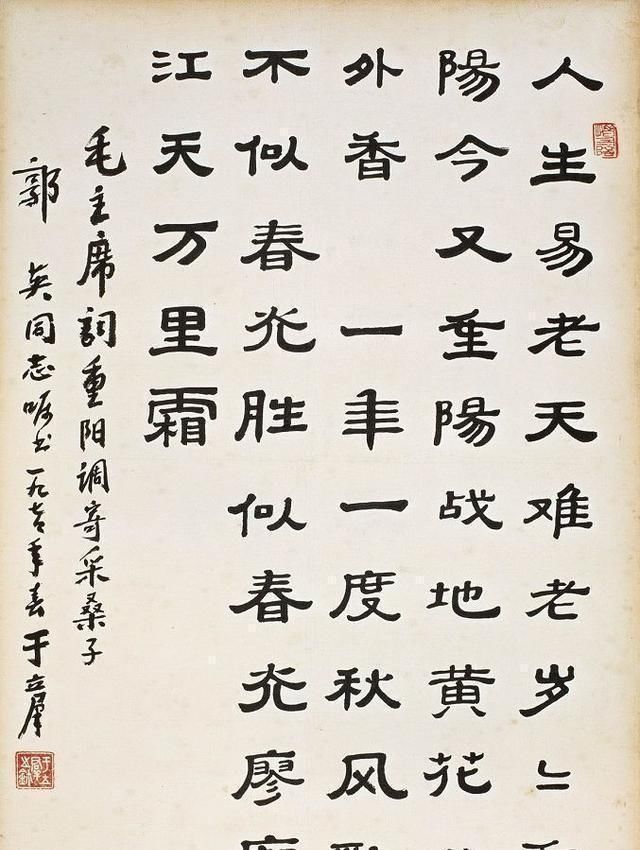 人生易老天难老岁〻
陽今又重陽战地黄花
外香 一年一度秋风
不似春光胜似春光廖
江天万里霜
毛主席詞重阳调寄采桑子
郭 英同志嘱书一九七年春于立群